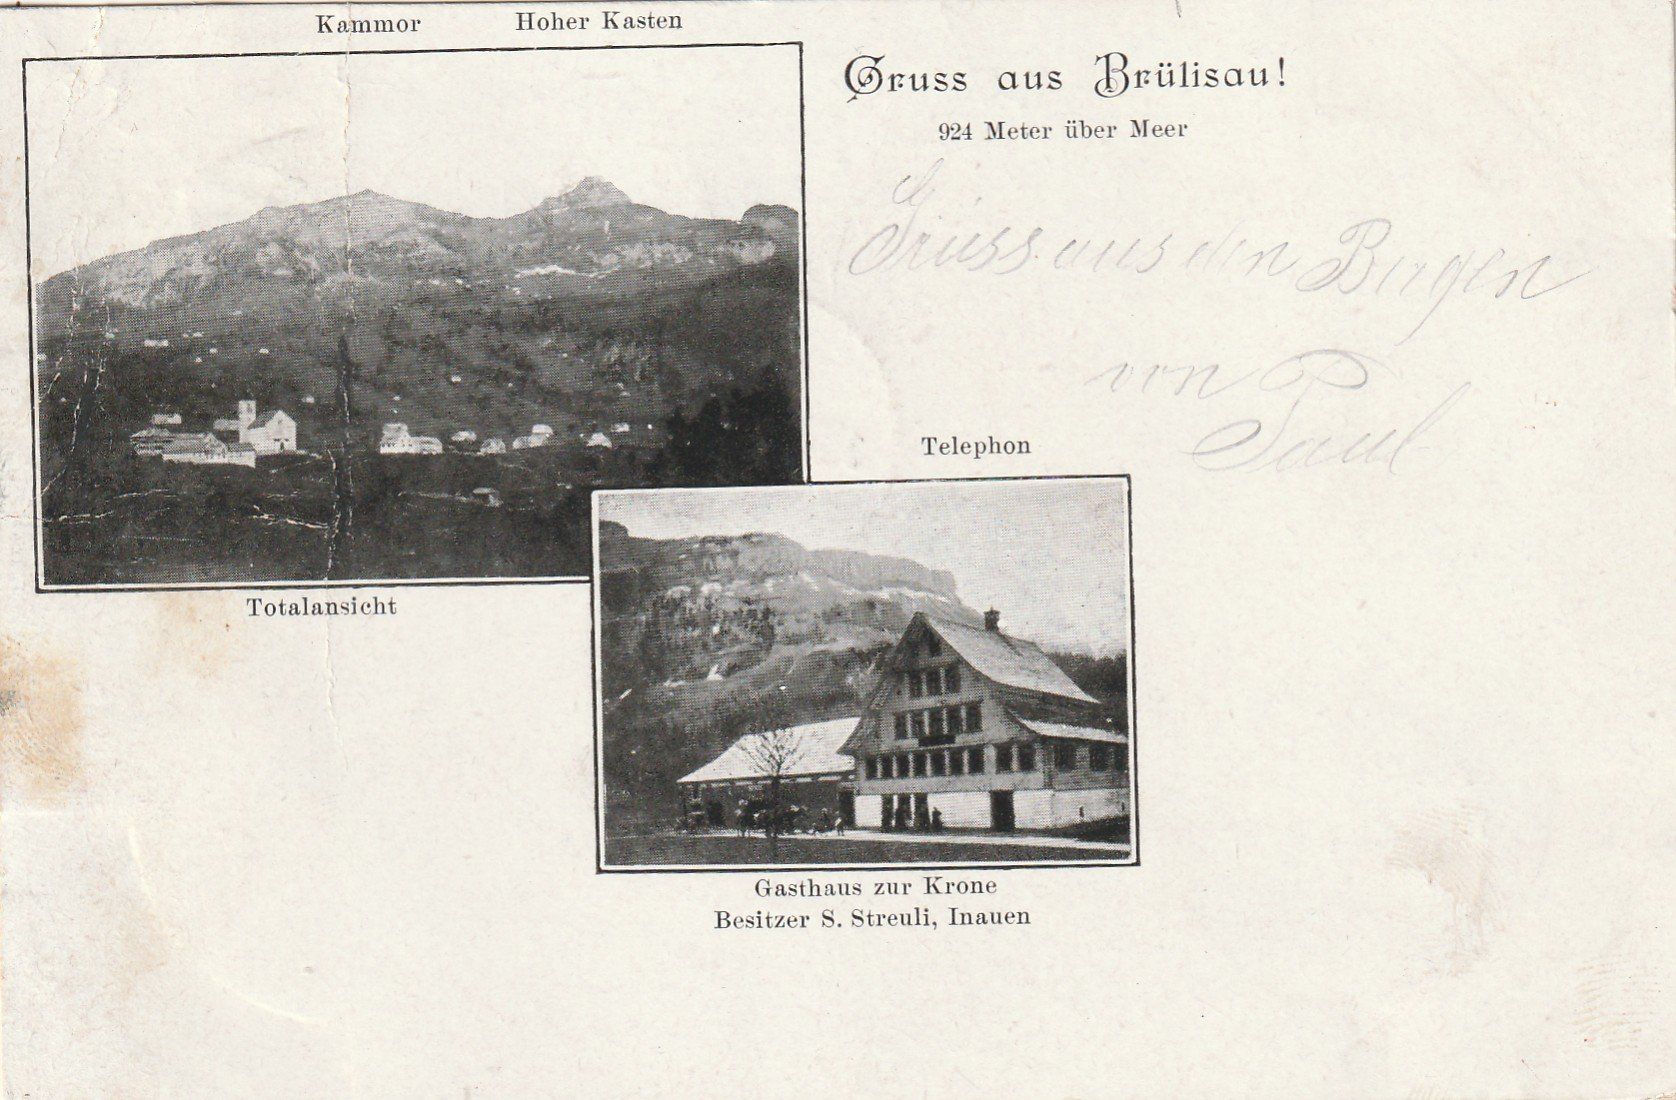 Kammor Hoher Kasten
Gruss aus Brülisau!
924 Meter über Meer
Grüss aus den Bergen
von
Paul
Telephon
Totalansicht
Gasthaus zur Krone
Besitzer S. Streuli, Inauen